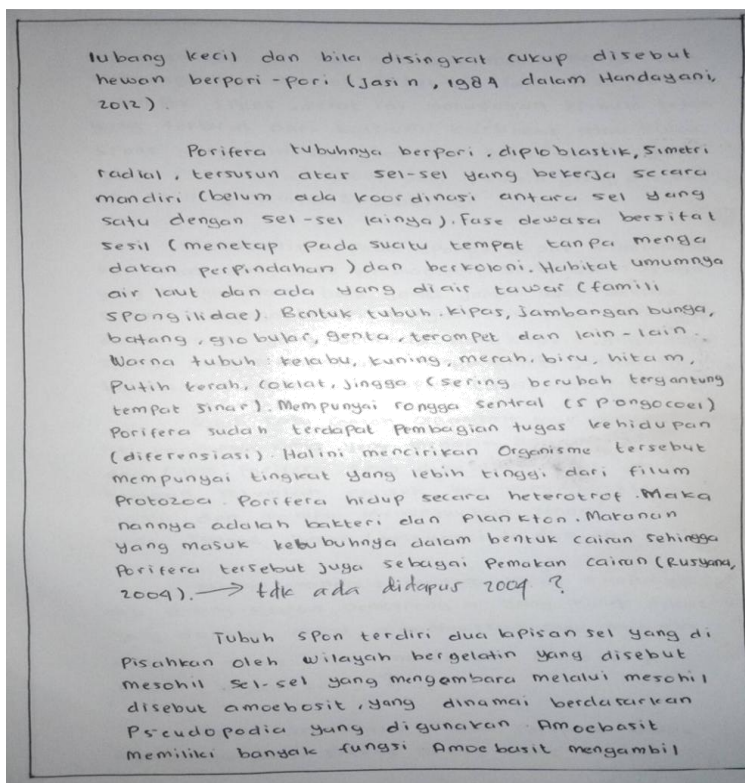 lubang kecil dan bila disingkat cukup disebut
hewan berpori-pori (Jasin, 1984 dalam Handayani,
2012).
Porifera tubuhnya berpori, diploblastik, Simetri
radial, tersusun atas sel-sel yang bekerja secara
mandiri (belum ada koordinasi antara sel yang
satu dengan sel-sel lainya). Fase dewasa bersifat
sesil (menetap pada suatu tempat tanpa menga
dakan perpindahan) dan berkoloni. Habitat umumnya
air laut dan ada yang diair tawar (famili
Spongilidae). Bentuk tubuh kipas, jambangan bunga,
batang, globular, genta, terompet dan lain-lain.
Warna tubuh : kelabu, kuning, merah, biru, hitam,
Putih kerah, coklat, Jingga (sering berubah tergantung
tempat sinar). Mempunyai rongga sentral (spongocoel)
Porifera sudah terdapat Pembagian tugas kehidupan
(diferensiasi). Hal ini mencirikan Organisme tersebut
mempunyai tingkat yang lebih tinggi dari filum
Protozoa. Porifera hidup secara heterotrof. Maka
nannya adalah bakteri dan Plankton. Makanan
yang masuk kebubuhnya dalam bentuk cairan sehingga
Porifera tersebut juga sebagai Pemakan cairan (Rusyana,
2004). → tdk ada didapus 2004 ?
Tubuh Spon terdiri dua lapisan sel yang di
Pisahkan oleh wilayah bergelatin yang disebut
mesohil Sel-sel yang mengambara melalui mesohil
disebut amoebosit, yang dinamai berdasarkan
Pseudopodia yang digunakan. Amoebasit
Memiliki banyak fungsi Amoebasit mengambil